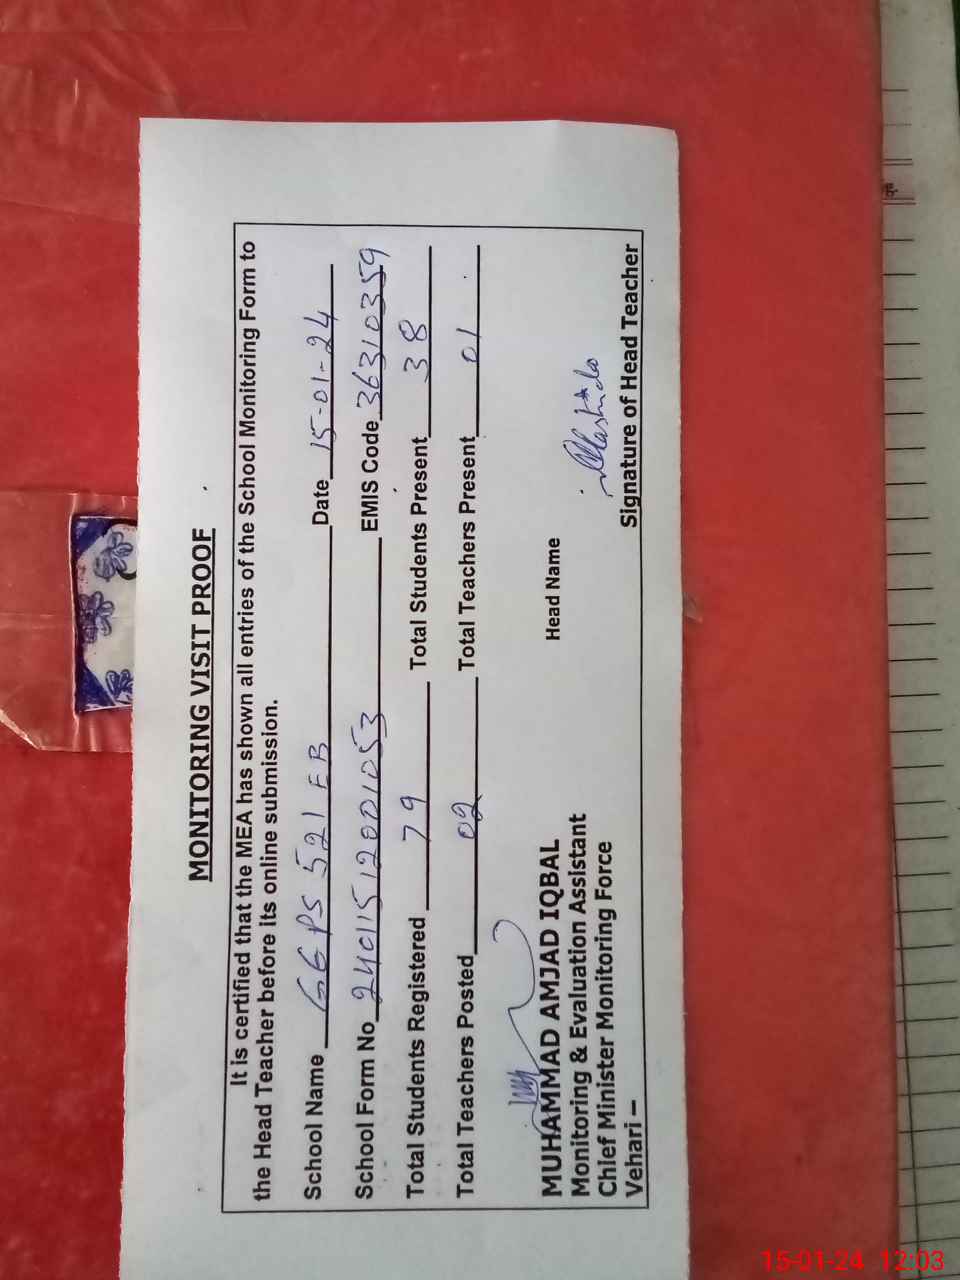 MONITORING VISIT PROOF
It is certified that the MEA has shown all entries of the School Monitoring Form to
the Head Teacher before its online submission.
School Name GGPS 521 EB Date 15-01-24
School Form No 24011512001053 EMIS Code 36310359
Total Students Registered 79 Total Students Present 38
Total Teachers Posted 02 Total Teachers Present 01
MUHAMMAD AMJAD IQBAL Head Name
Monitoring & Evaluation Assistant
Chief Minister Monitoring Force
Vehari – Signature of Head Teacher
15-01-24 12:03